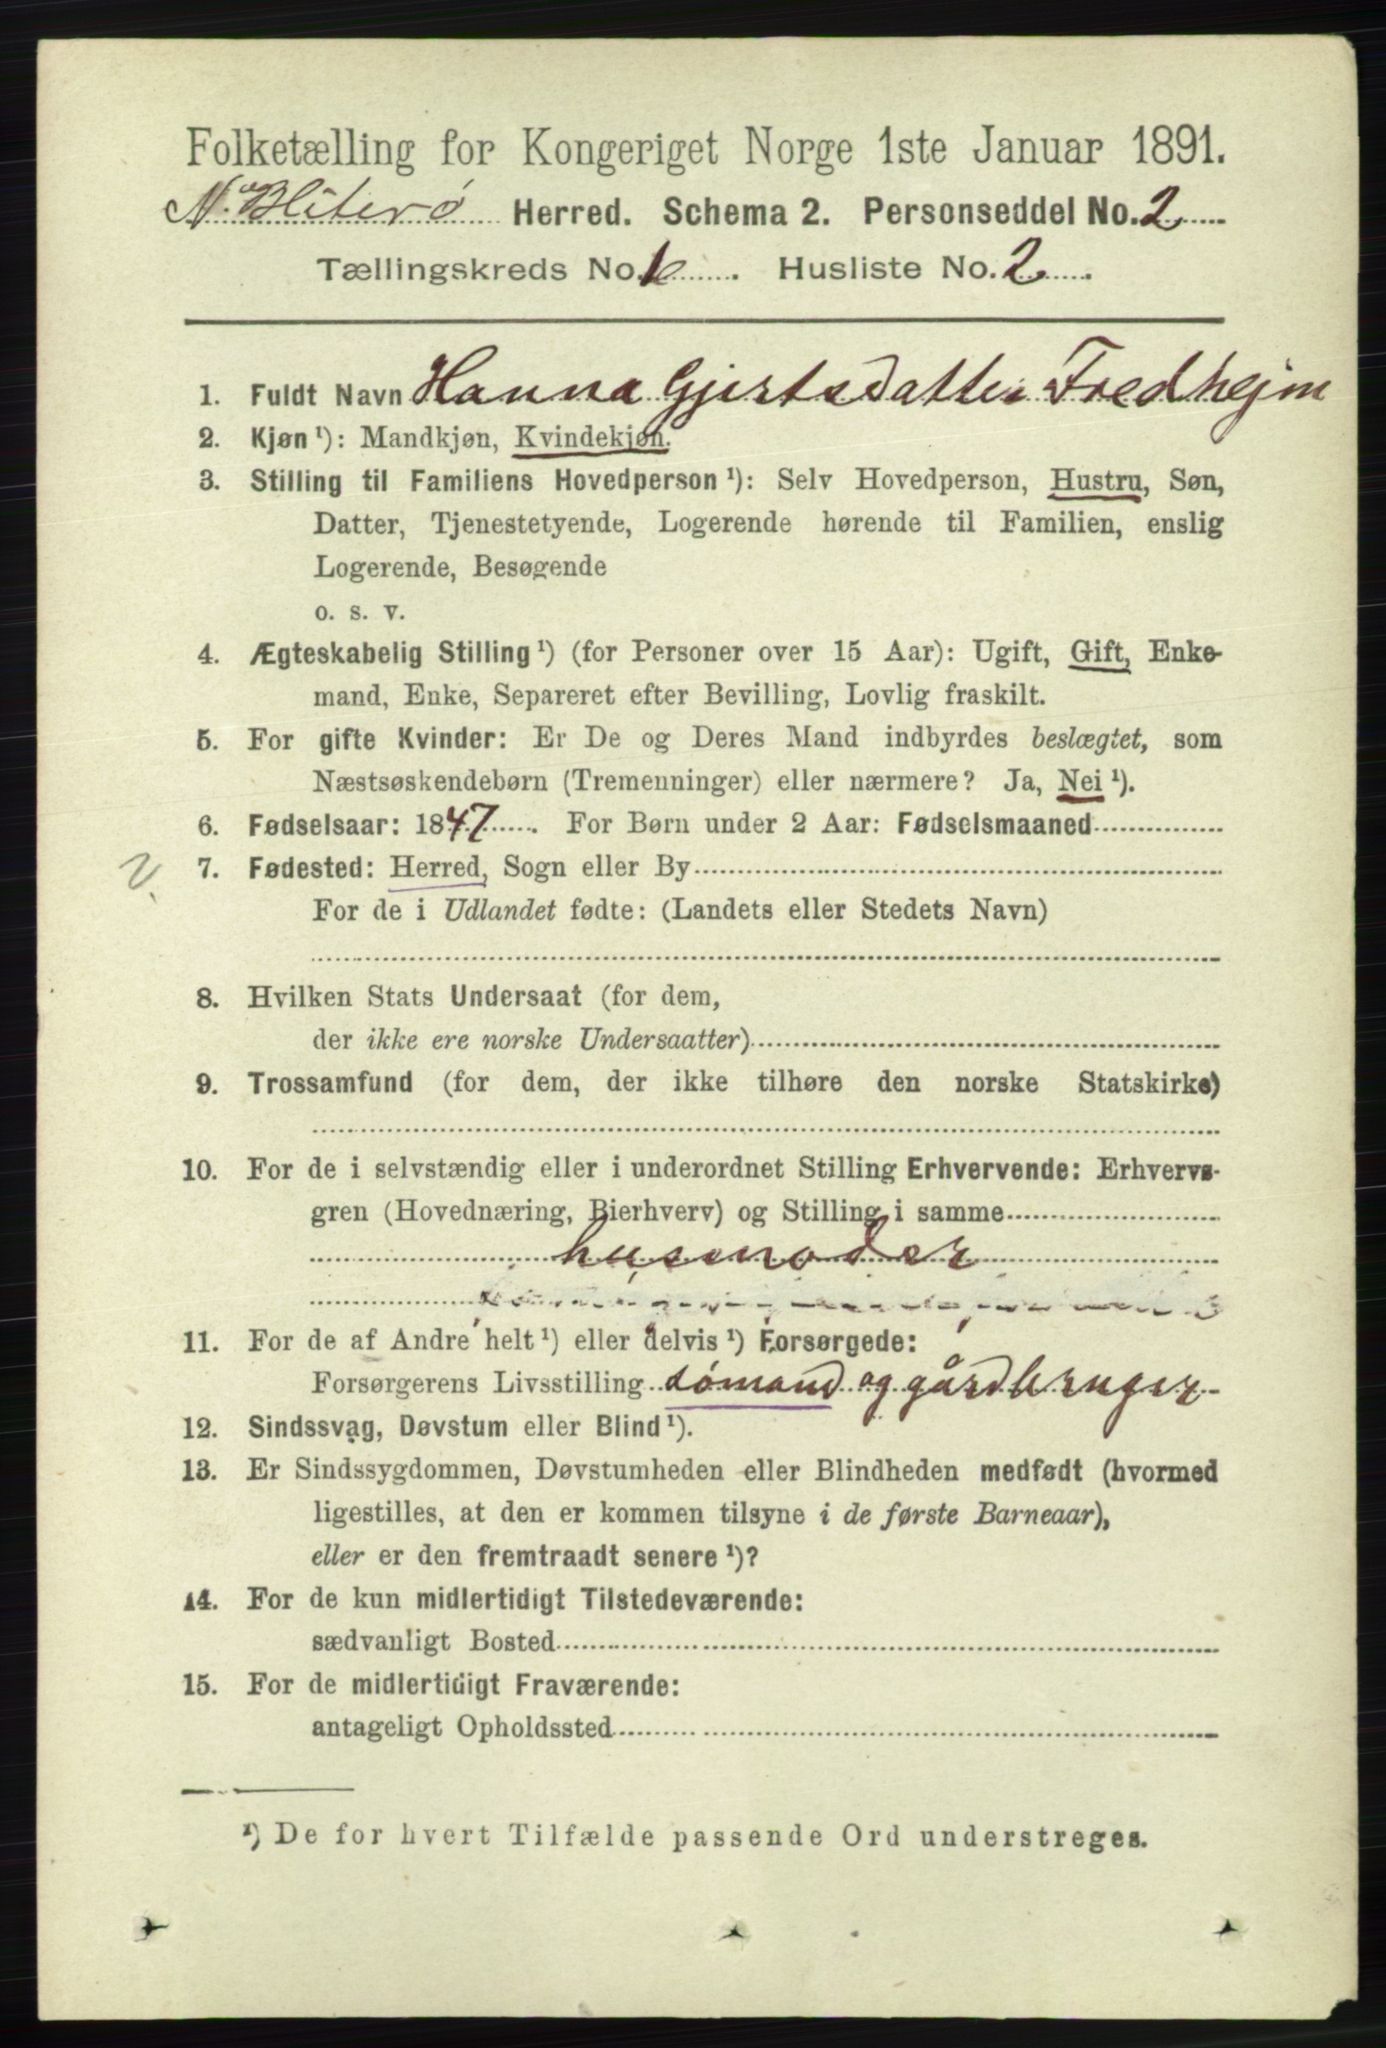 Folketælling for Kongeriget Norge 1ste Januar 1891.
N. og Hiterø Herred. Schema 2. Personseddel No. 2
Tællingskreds No. 6. Husliste No. 2.
1. Fuldt Navn Hanna Gjertsdatter Fredhejm
2. Kjøn ¹): Mandkjøn, Kvindekjøn.
3. Stilling til Familiens Hovedperson ¹): Selv Hovedperson, Hustru, Søn,
Datter, Tjenestetyende, Logerende hørende til Familien, enslig
Logerende, Besøgende
o. s. v.
4. Ægteskabelig Stilling ¹) (for Personer over 15 Aar): Ugift, Gift, Enke-
mand, Enke, Separeret efter Bevilling, Lovlig fraskilt.
5. For gifte Kvinder: Er De og Deres Mand indbyrdes beslægtet, som
Næstsøskendebørn (Tremenninger) eller nærmere? Ja, Nei ¹).
6. Fødselsaar: 1847. For Børn under 2 Aar: Fødselsmaaned
7. Fødested: Herred, Sogn eller By
For de i Udlandet fødte: (Landets eller Stedets Navn)
8. Hvilken Stats Undersaat (for dem,
der ikke ere norske Undersaatter)
9. Trossamfund (for dem, der ikke tilhøre den norske Statskirke)
10. For de i selvstændig eller i underordnet Stilling Erhvervende: Erhvervs-
gren (Hovednæring, Bierhverv) og Stilling i samme
husmoder
11. For de af Andre helt ¹) eller delvis ¹) Forsørgede:
Forsørgerens Livsstilling sømand og gårdbruger
12. Sindssvag, Døvstum eller Blind ¹).
13. Er Sindssygdommen, Døvstumheden eller Blindheden medfødt (hvormed
ligestilles, at den er kommen tilsyne i de første Barneaar),
eller er den fremtraadt senere ¹)?
14. For de kun midlertidigt Tilstedeværende:
sædvanligt Bosted
15. For de midlertidigt Fraværende:
antageligt Opholdssted
¹) De for hvert Tilfælde passende Ord understreges.